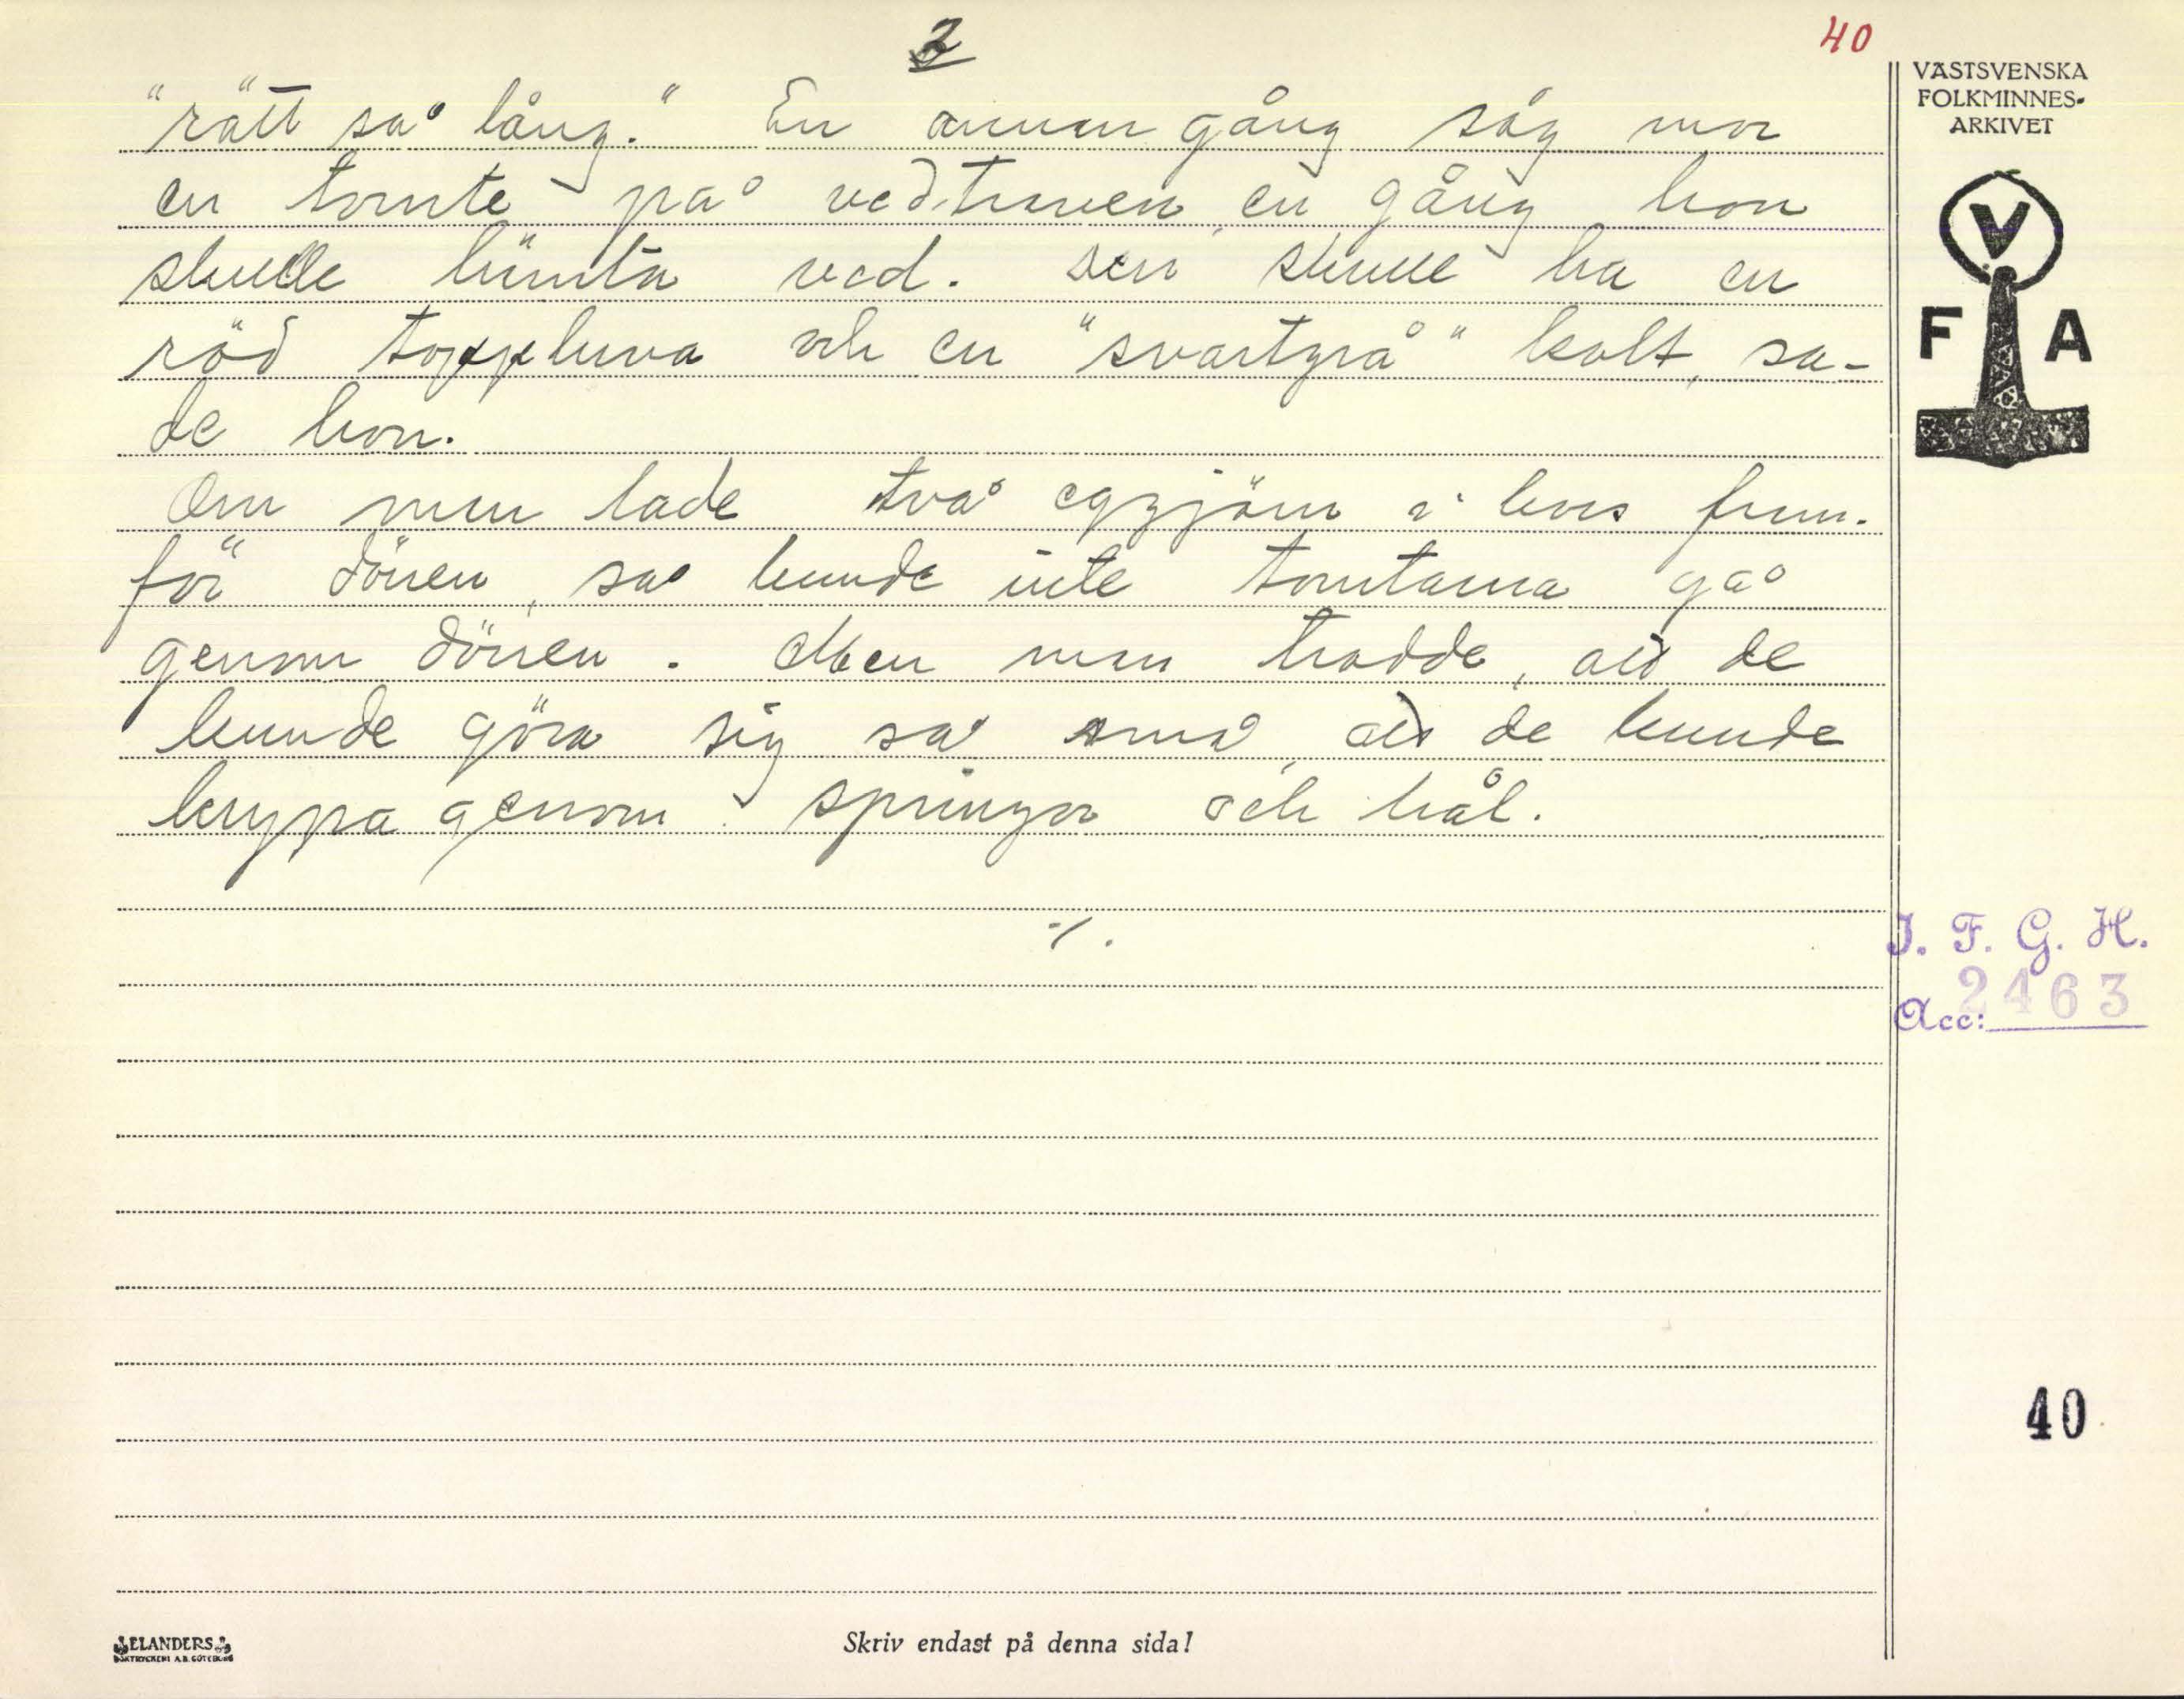 2
40
"rätt så lång." En annan gång såg mor
en tomte på vedtraven en gång hon
skulle hämta ved. Den skulle ha en
röd toppluva och en "svartgrå" kolt, sa-
de hon.
Om man lade två eggjärn i kors fram-
för dörren, så kunde inte tomtarna gå
genom dörren. Men man trodde, att de
kunde göra sig så små, att de kunde
krypa genom springor och hål.
./.
VÄSTSVENSKA
FOLKMINNES-
ARKIVET
V
F A
I. F. G. H.
Acc: 2463
40
ELANDERS
BOKTRYCKERI A.B. GÖTEBORG
Skriv endast på denna sida!